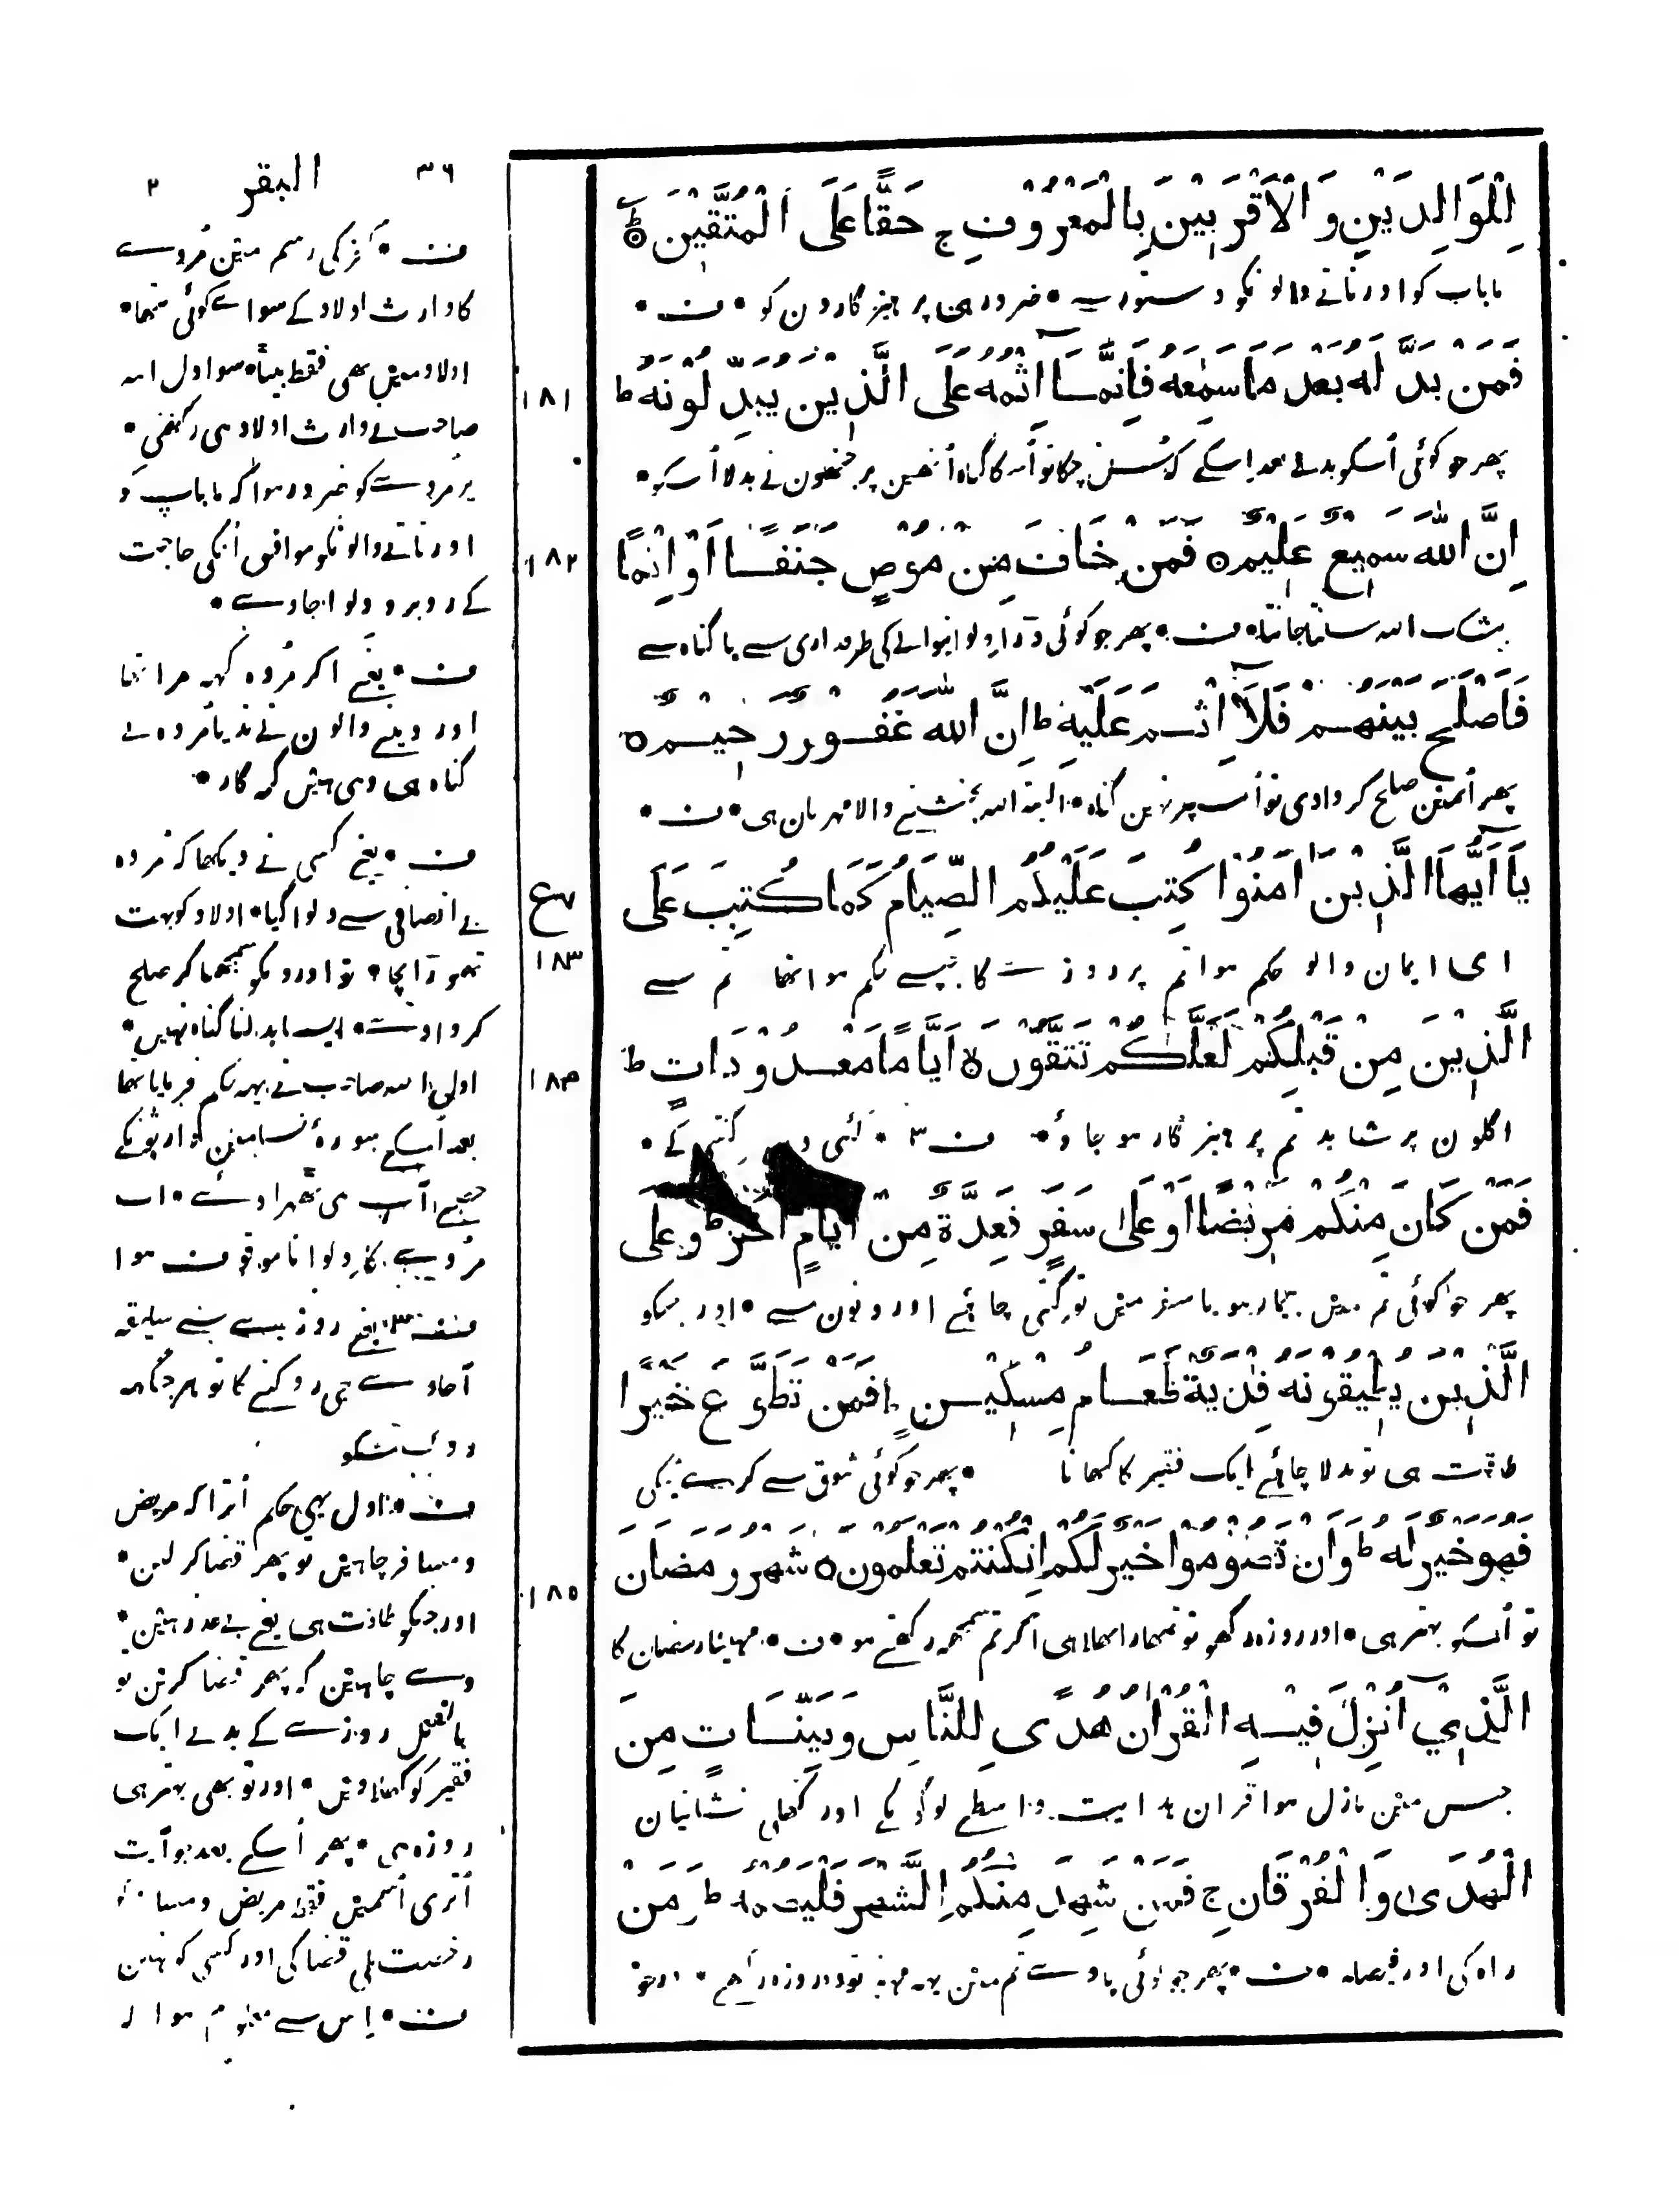 ٣٦ البقر ٢
لِلْوَالِدَيْنِ وَ الْاَقْرَبِيْنَ بِالْمَعْرُوْفِ ج حَقًّا عَلَى الْمُتَّقِيْنَ ۝ط
ماباپ کو اور ناتے والونکو دستور سے • ضرور ہی پرہیزگارون کو • ف •
فَمَنْ بَدَّلَهُ بَعْدَ مَا سَمِعَهُ فَاِنَّمَآ اِثْمُهُ عَلَى الَّذِيْنَ يُبَدِّلُوْنَهُ ط
١٨١
پھر جو کوئی اُسکو بدلے بعد اِسکے کہ سُن چکا تو اُسکا گناہ اُنھین پر جنھون نے بدلا اُسکو •
اِنَّ اللّٰهَ سَمِيْعٌ عَلِيْمٌ ۝ فَمَنْ خَافَ مِنْ مُوْصٍ جَنَفًا اَوْ اِثْمًا
١٨٢
بیشک اللہ سنتا جانتا • ف • پھر جو کوئی ڈرا دلوانیوالے کی طرفداری سے یا گناہ سے
فَاَصْلَحَ بَيْنَهُمْ فَلَآ اِثْمَ عَلَيْهِ ط اِنَّ اللّٰهَ غَفُوْرٌ رَحِيْمٌ ۝
پھر اُنمین صلح کروادی تو اُسپر نہین گناہ • البتہ اللہ بخشنے والا مہربان ہی • ف •
يَآ اَيُّهَا الَّذِيْنَ اٰمَنُوْا كُتِبَ عَلَيْكُمُ الصِّيَامُ كَمَا كُتِبَ عَلَى
١٨٣
ای ایمان والو حکم ہوا تم پر روزے کا جیسے حکم ہوا تھا تم سے
الَّذِيْنَ مِنْ قَبْلِكُمْ لَعَلَّكُمْ تَتَّقُوْنَ لا اَيَّامًا مَعْدُوْدَاتٍ ط
١٨٤
اگلون پر شاید تم پرہیزگار ہو جاؤ • ف ٣ • کئی دن گنتی کے •
فَمَنْ كَانَ مِنْكُمْ مَرِيْضًا اَوْ عَلٰى سَفَرٍ فَعِدَّةٌ مِنْ اَيَّامٍ اُخَرَ ط وَعَلَى
پھر جو کوئی تم مین بیمار ہو یا سفر مین تو گنتی چاہئے اور دنون سے • اور جنکو
الَّذِيْنَ يُطِيْقُوْنَهُ فِدْيَةٌ طَعَامُ مِسْكِيْنٍ ط فَمَنْ تَطَوَّعَ خَيْرًا
طاقت ہی تو بدلا چاہئے ایک فقیر کا کھانا • پھر جو کوئی شوق سے کرے نیکی
فَهُوَ خَيْرٌ لَهُ ط وَاَنْ تَصُوْمُوْا خَيْرٌ لَكُمْ اِنْ كُنْتُمْ تَعْلَمُوْنَ ۝ شَهْرُ رَمَضَانَ
١٨٥
تو اُسکو بہتر ہی • اور روزہ رکھو تو تمھارا بھلا ہی اگر تم سمجھ رکھتے ہو • ف • مہینا رمضان کا
الَّذِيْ اُنْزِلَ فِيْهِ الْقُرْاٰنُ هُدًى لِلنَّاسِ وَبَيِّنَاتٍ مِنَ
جس مین نازل ہوا قران ہدایت واسطے لوگونکے اور کھلی نشانیان
الْهُدٰى وَالْفُرْقَانِ ج فَمَنْ شَهِدَ مِنْكُمُ الشَّهْرَ فَلْيَصُمْهُ ط وَمَنْ
راہ کی اور فیصلہ • ف • پھر جو کوئی پاوے تم مین یہہ مہینہ تو روزہ رکھے • اور جو
ف • کفر کی رسم مین مُردے
کا وارث اولاد کے سوائے کوئی نتھا •
اولاد مین بھی فقط بیٹا • سو اول اللہ
صاحب نے وارث اولاد ہی رکھی •
پر مردے کو ضرور ہوا کہ ماباپ کو
اور ناتے والونکو موافق اُنکی حاجت
کے روبرو دلوا جاوے •
ف • یعنے اگر مُردہ کہہ مرا تھا
اور دینے والون نے ندیا مُردہ بے
گناہ ہی وہی ہین گنہگار •
ف • یعنے کسی نے دیکھا کہ مُردہ
بے انصافی سے دلوا گیا • اولاد کو بہت
تھوڑا بچا • تو اورونکو سمجھا کر صلح
کروا دے • ایسا بدلنا گناہ نہین •
اولی اللہ صاحب نے یہہ حکم فرمایا تھا
بعد اُسکے سورۂ نسا مین وارثونکے
حصے آپ ہی ٹھہرا دئے • اب
مردے کا دلوانا موقوف ہوا
ف ٣ • یعنے روزے سے سلیقہ
آجاوے جی روکنے کا تو ہر جگہ
روک سکو
ف • اول یہی حکم اُترا کہ مریض
و مسافر چاہین تو پھر قضا کر لین •
اور جنکو طاقت ہی یعنے بے عذر ہین •
وے چاہین کہ پھر قضا کرین تو
بالفعل روزے کے بدلے ایک
فقیر کو کھلا دین • اور تو بھی بہتر ہی
روزہ ہی • پھر اُسکے بعد جو آیت
اُتری اُسمین فقط مریض و مسافر کو
رخصت ملی قضا کی اور کسی کو نہین
ف • اِس سے معلوم ہوا کہ